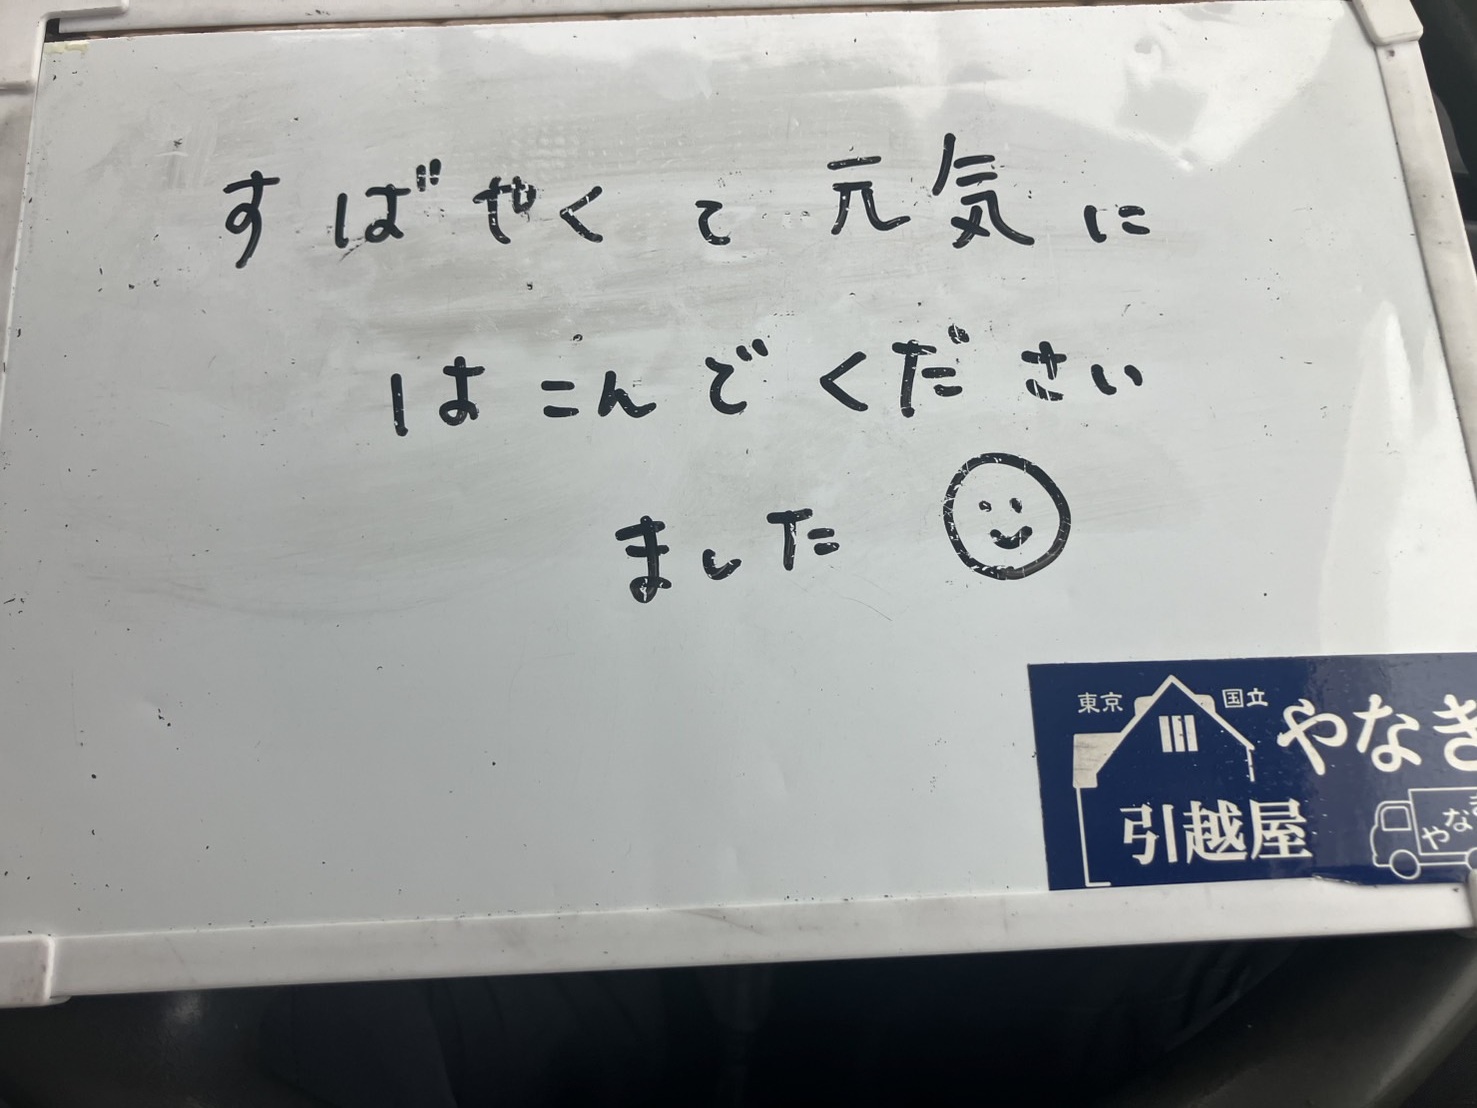 すばやくて元気に
はこんでください
ました
東京 国立 やなぎ
引越屋
やなぎ